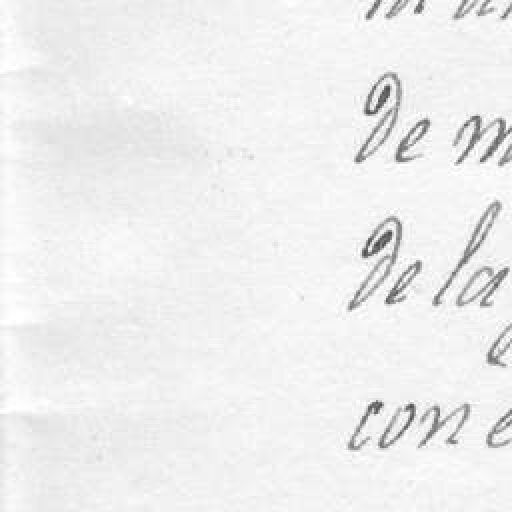 de m
de la
con e